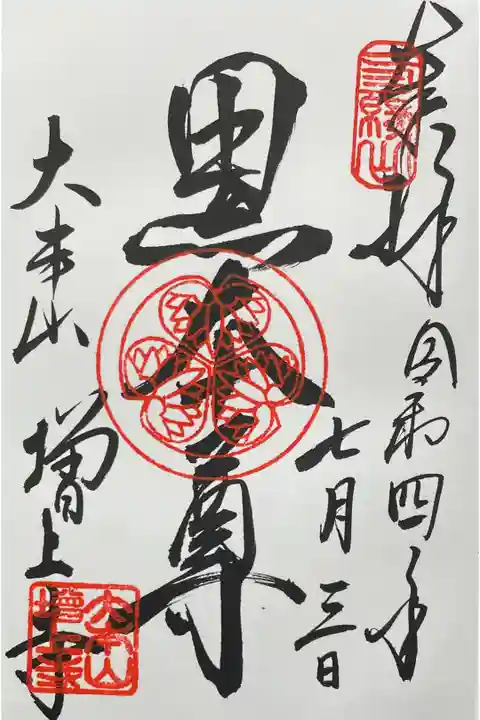 奉拝
令和四年
七月三日
黒本尊
大本山
増上寺
三縁山
大本山
増上寺